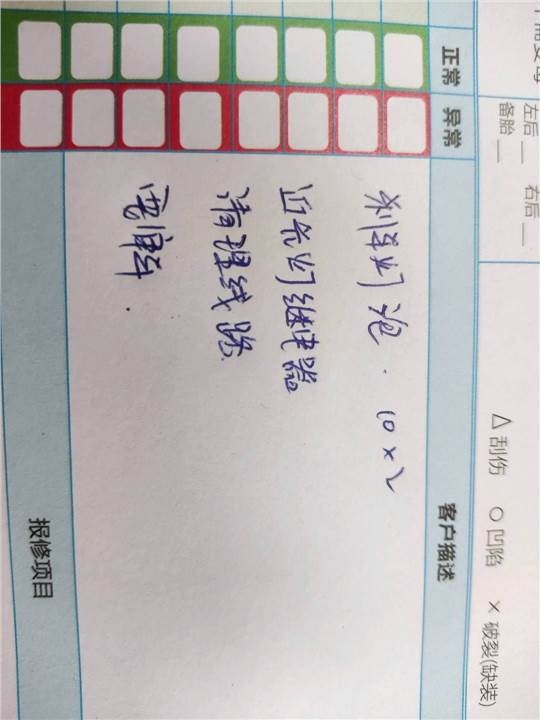 左后__ 右后__
备胎__
△刮伤 ○凹陷 ×破裂(缺装)
正常 异常 客户描述
刹车灯泡. 10×2
近光灯继电器
清理线路
电解
报修项目